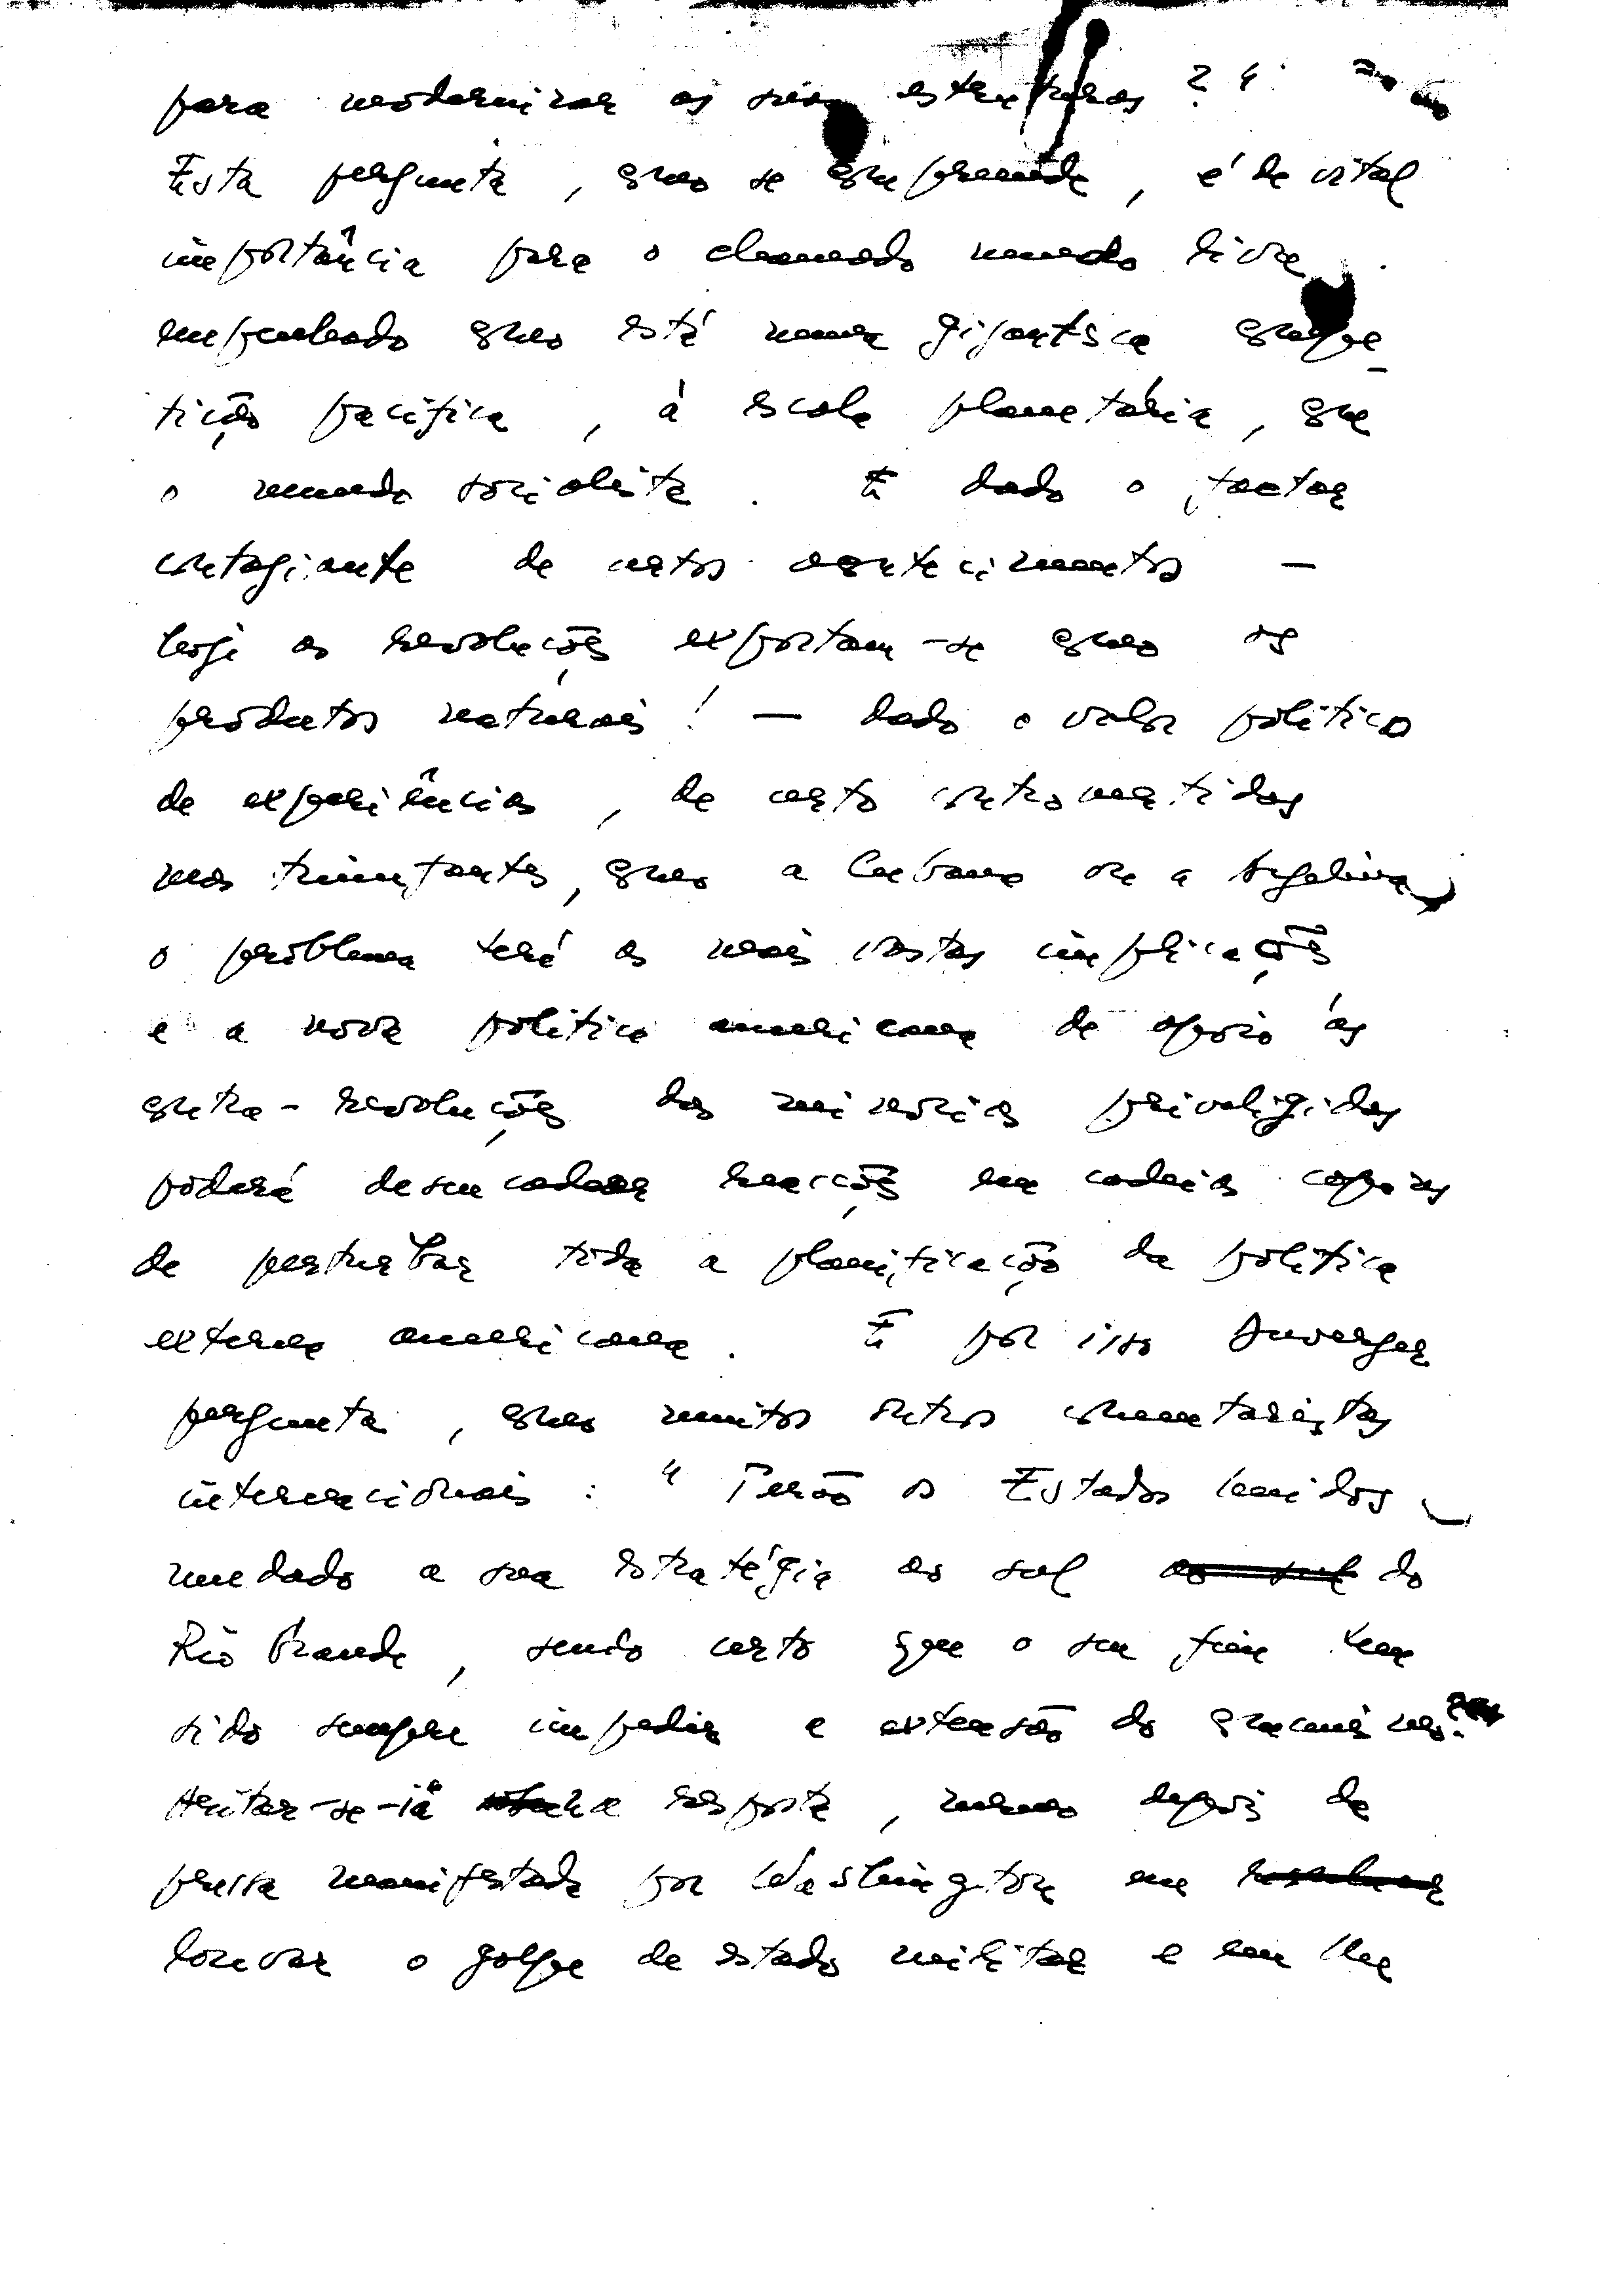 para modernizar as suas estruturas ?"
Esta pergunta, como se compreende, é de vital
importância para o chamado mundo livre
empenhado como está numa gigantesca compe-
tição pacífica, à escala planetária, com
o mundo socialista. E dado o factor
contagiante de certos acontecimentos —
hoje as revoluções exportam-se como os
produtos naturais! — dado o valor político
de experiências, de certo controvertidas
mas triunfantes, como a Cubana ou a Argelina,
o problema terá as mais vastas implicações
e a nova política americana de apoio às
contra-revoluções das minorias privilegidas
poderá desencadear reacções em cadeia capazes
de perturbar toda a planificação da política
externa americana. E por isso Duverger
pergunta, como muitos outros comentaristas
internacionais: "Terão os Estados Unidos
mudado a sua estratégia ao sul ao sul do
Rio Grande, sendo certo que o seu fim tem
sido sempre impedir a extensão do comunismo?
Hesitar-se-ia na resposta, mesmo depois da
pressa manifestada por Washington em
louvar o golpe de estado militar e em lhe